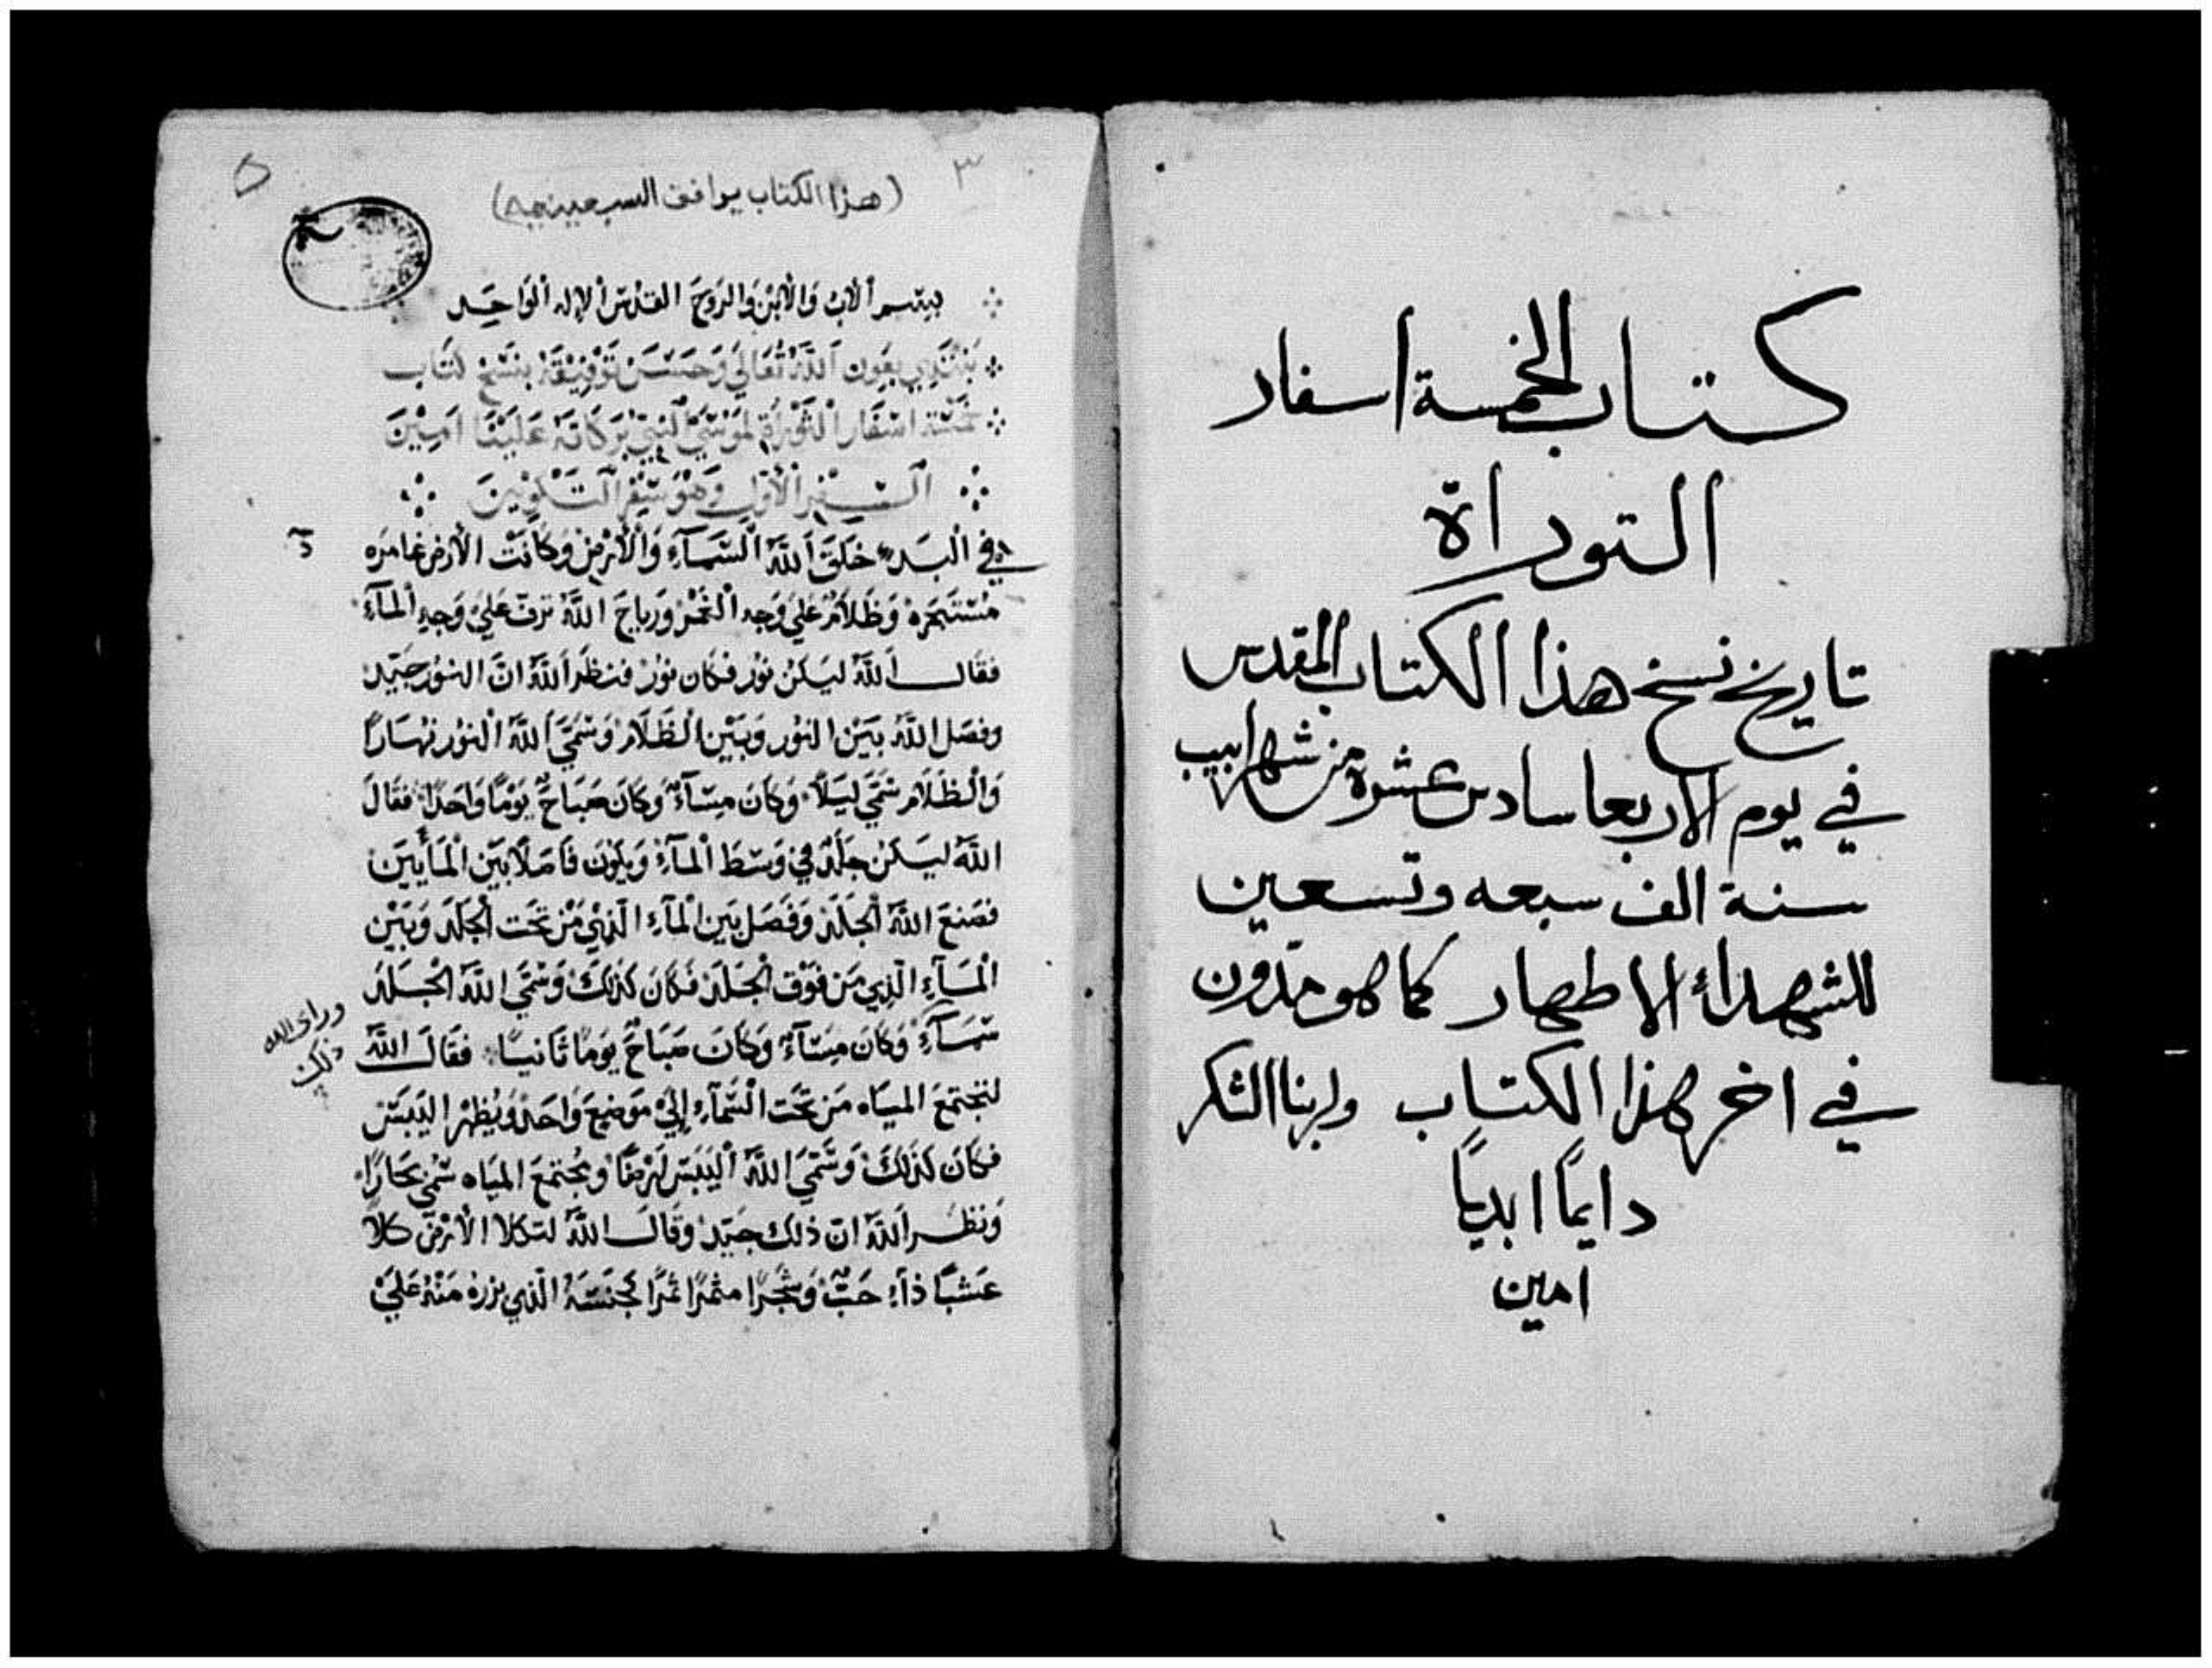 كتاب الخمسة اسفار
التوراة
تاريخ نسخ هذا الكتاب المقدس
في يوم الاربعا سادس عشرة من شهر ابيب
سنة الف سبعه وتسعين
للشهداء الاطهار كما هو مدون
في اخر هذا الكتاب ولربنا الشكر
دايمًا ابديًا
امين
٣
٥
(هذا الكتاب يوافق السبعينيه)
بسم ألاب وَالأبن وَالروح القدس ألإله ألوَاحِد
نبتدي بعَون اَللَّه تعَالي وَحسن توفيقه بنسخ كتاب
خمسَة اسفَار ألتَورَاة لموسي ألنبي بَرَكَاته عَلَينَا امِينَ
ألسفر ألأول وَهوَ سفر ألتكوينَ
في ألبَدء خَلَقَ اَللَّه ألسَّمَآء وَألأرض وَكَانَت الأرض غامره
مستبحره وَظَلَام عَلي وَجه ألغمر وَرياح اللَّه ترف عَلي وَجه ألمآء
فقال اَللَّه ليَكن نور فكان نور فنظَر اَللَّه انَّ النور جيد
وفصَل اللَّه بَين النور وَبَين ألظَلَام وَسَمَّي اَللَّه ألنور نهَارًا
وَألظَلَام سَمَّي ليلًا وَكَانَ مسَآء وَكَانَ صَبَاح يَومًا وَاحدًا فقَالَ
اللَّه ليَكن جلَد في وَسَط ألمآء وَيكون فَاصلًا بَين ألمَأيين
فصَنعَ اللَّه ألجَلَد وَفَصَل بَين ألمآء الَّذي مَن تحَت ألجَلَد وَبَين
ألمَآء الَّذي مَن فوق ألجَلَد فَكَانَ كذلكَ وَسَمَّي اللَّه الجَلَد
سَمَآء وَكَان مسَآء وَكَانَ صَبَاح يَومًا ثَانيًا فقَال اللَّه
وراى الله
ذلك
لتجتمعَ الميَاه مَن تحَت ألسَّمآء إلي مَوضع وَاحَد وَيظهر اليَبَس
فكَانَ كذلكَ وَسَمَّي اللَّه أليَبَس أرضًا وَمجتمعَ الميَاه سمي بحَارًا
وَنظر اَللَّه انّ ذلك جيد وقَال اللَّه لتكلا الأرض كلأ
عَشبًا ذآ حَبّ وَشجَرًا مثمرًا ثمرًا لجنسَه الَّذي بزره مَنه عَلي